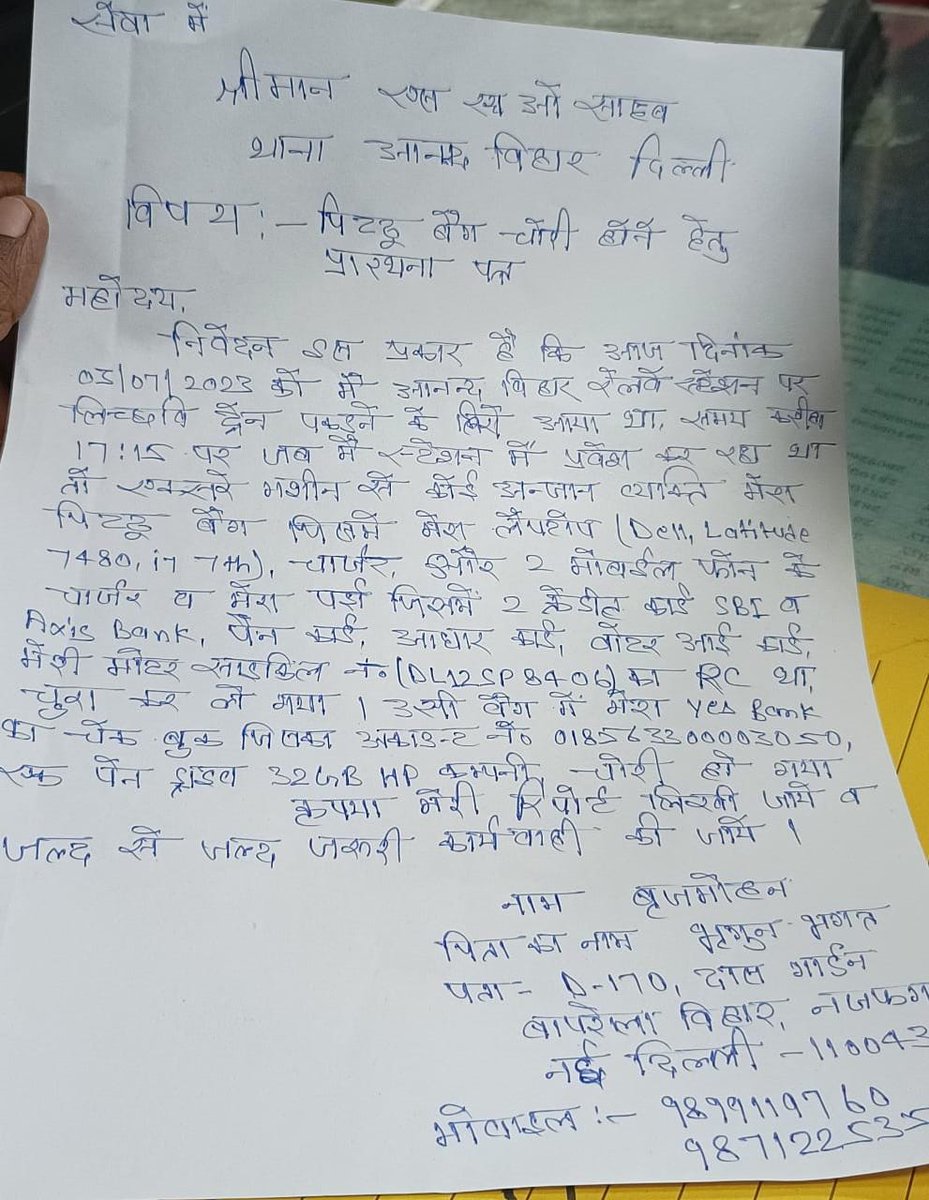 सेवा में
श्रीमान एस एच ओ साहब
थाना आनन्द विहार दिल्ली
विषय :- पिटठू बैग चोरी होने हेतु
प्रारथना पत्र
महोदय,
निवेदन इस प्रकार है कि आज दिनांक
03/07/2023 को मैं आनन्द विहार रेलवे स्टेशन पर
लिच्छवि ट्रेन पकड़ने के लिये आया था, समय करीब
17:15 पर जब मैं स्टेशन में प्रवेश कर रहा था
तो एक्सरे मशीन से कोई अन्जान व्यक्ति मेरा
पिटठू बैग जिसमें मेरा लैपटॉप (Dell, Latitude
7480, i7 7th), चार्जर, और 2 मोबाईल फोन के
चार्जर व मेरा पर्स जिसमें 2 क्रेडीट कार्ड SBI व
Axis Bank, पेन कार्ड, आधार कार्ड, वोटर आई कार्ड,
मेरी मोटर साइकिल नं० (DL12SP8406) का RC था,
चुरा कर ले गया । उसी बैग में मेरा Yes Bank
का चेक बुक जिसका अकाउन्ट नं० 018563300003050,
एक पेन ड्राइव 32GB HP कम्पनी, चोरी हो गया
कृपया मेरी रिपोर्ट लिखी जाये व
जल्द से जल्द जरुरी कार्यवाही की जाये ।
नाम बृजमोहन
पिता का नाम भगत
पता = D-170, दास गार्डन
बापरोला विहार, नजफग
नई दिल्ली - 110043
मोबाइल :- 9899119760
987122535